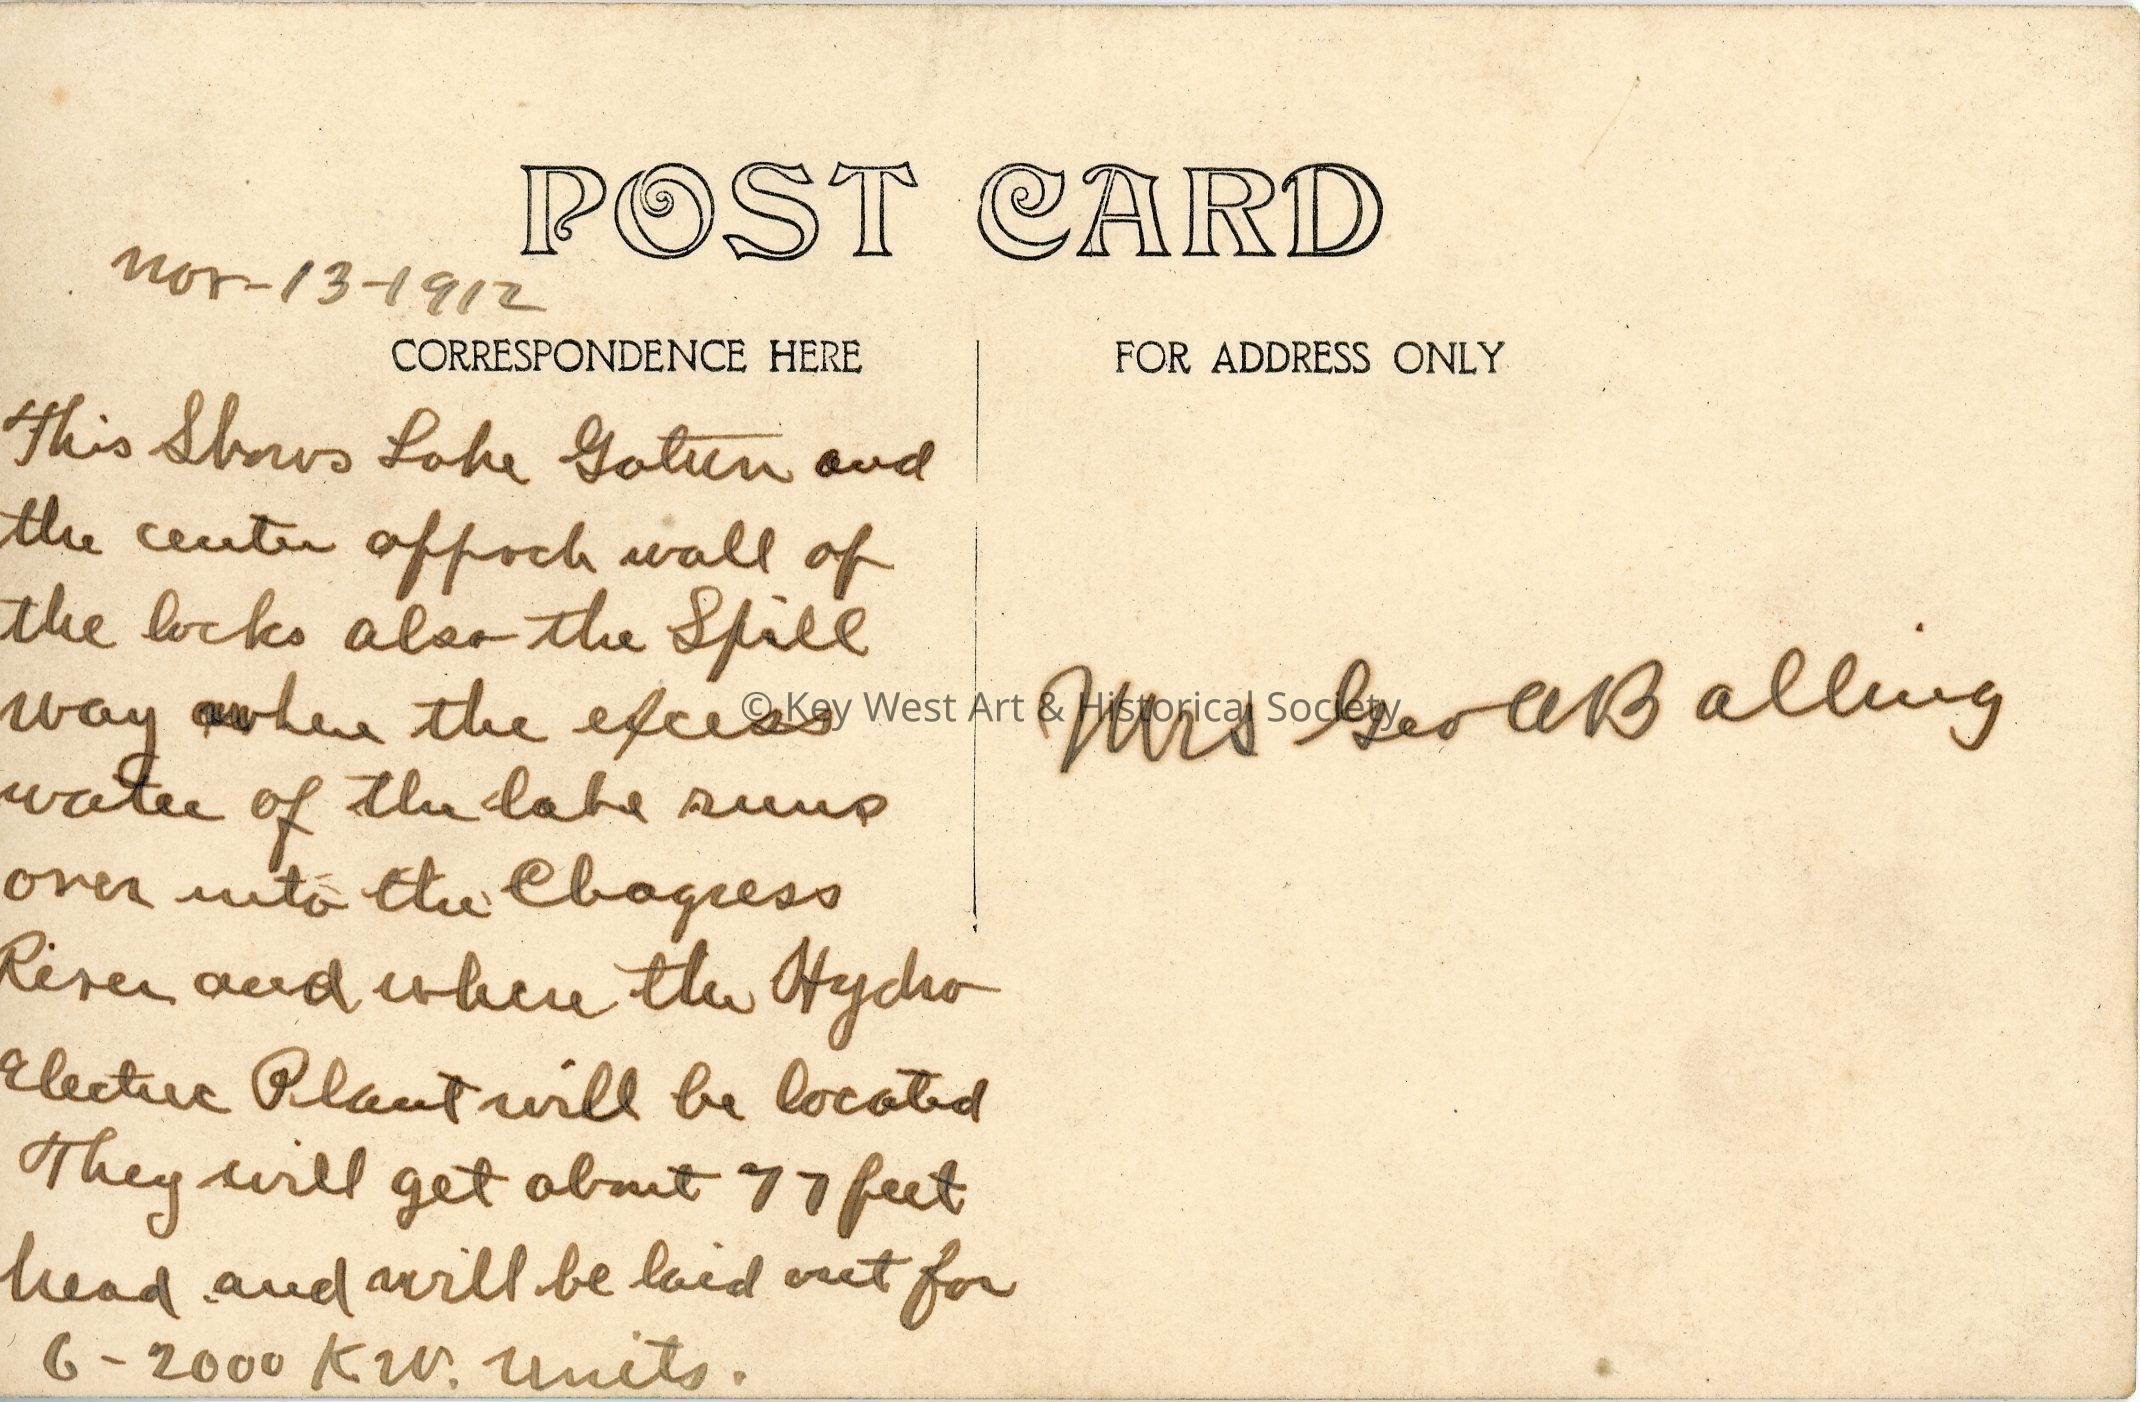 POST CARD
Nov-13-1912
CORRESPONDENCE HERE
FOR ADDRESS ONLY
This Shows Lake Gatun and
the center approch wall of
the locks also the Spill
way where the excess
water of the lake runs
over into the Chagress
River and where the Hydro
Electric Plant will be located
They will get about 77 feet
head and will be laid out for
6-2000 K.W. Units.
Mrs Geo A Balling
© Key West Art & Historical Society